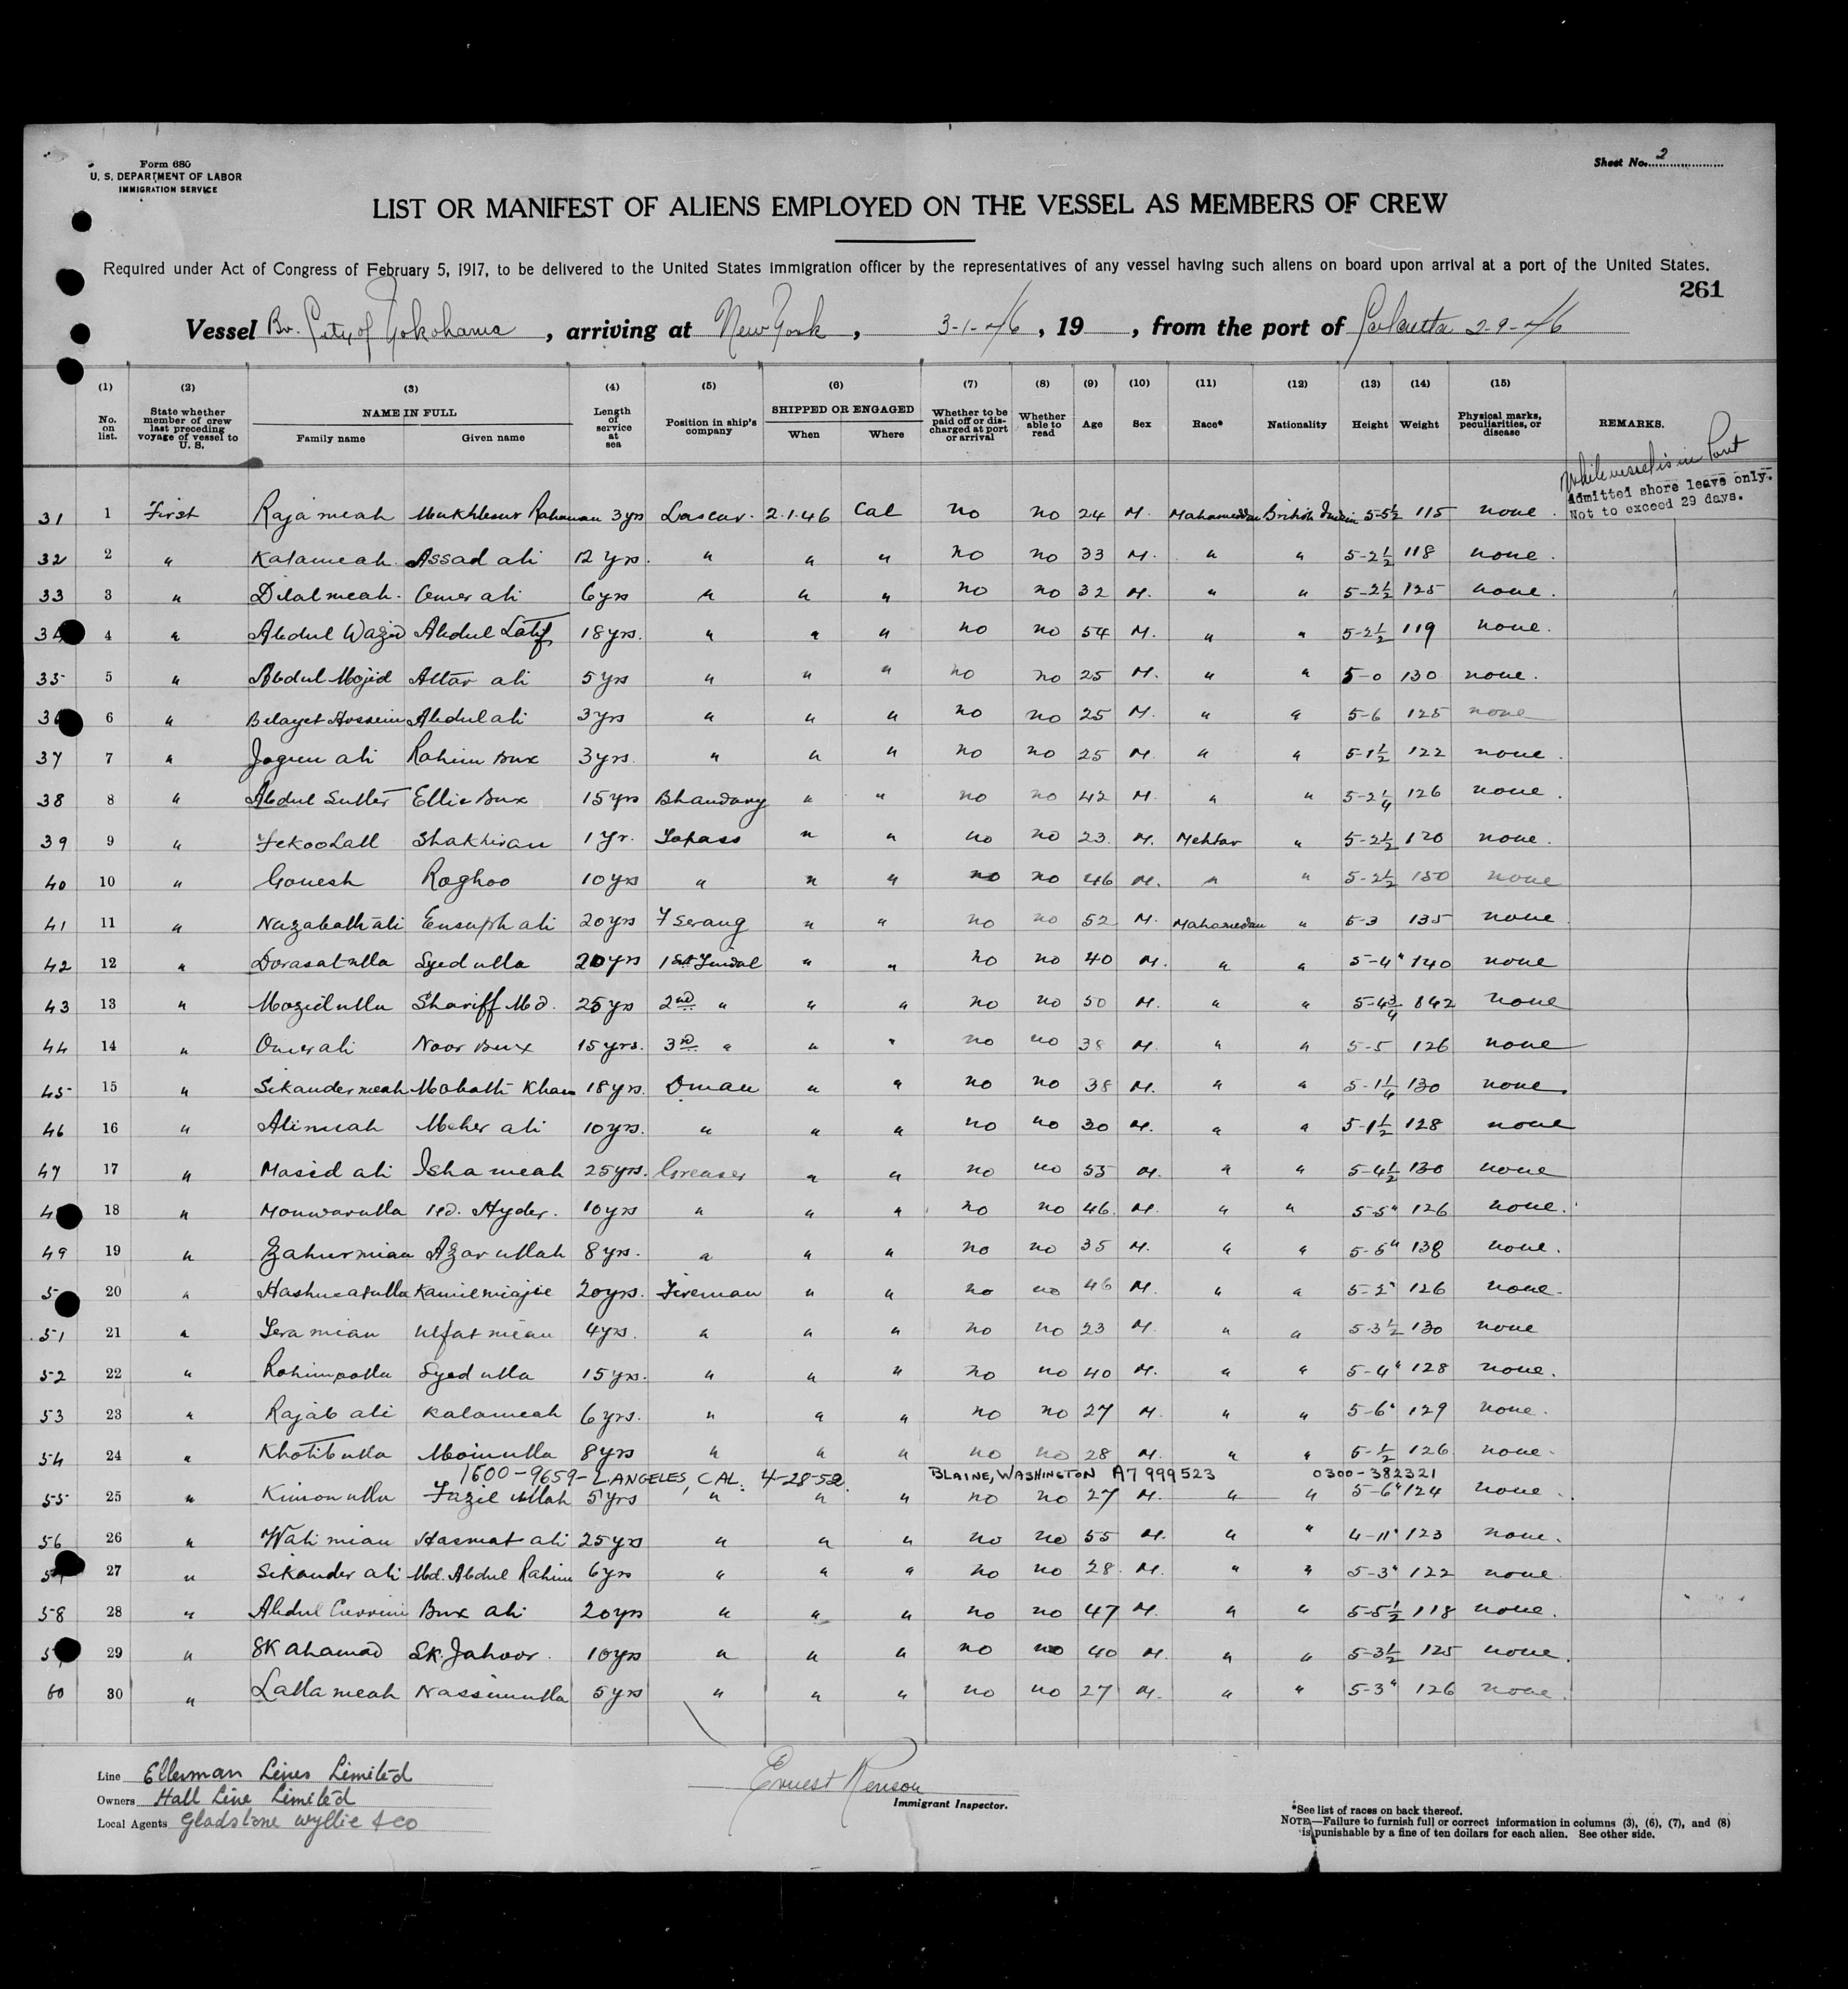 Form 680
U. S. DEPARTMENT OF LABOR
IMMIGRATION SERVICE
Sheet No. 2
LIST OR MANIFEST OF ALIENS EMPLOYED ON THE VESSEL AS MEMBERS OF CREW
Required under Act of Congress of February 5, 1917, to be delivered to the United States immigration officer by the representatives of any vessel having such aliens on board upon arrival at a port of the United States.
261
Vessel Br. City of Yokohama, arriving at New York, 3-1-46, 19 , from the port of Calcutta 2-9-46
(1) (2) (3) (4) (5) (6) (7) (8) (9) (10) (11) (12) (13) (14) (15)
No. on list. State whether member of crew last preceding voyage of vessel to U. S. NAME IN FULL Family name Given name Length of service at sea Position in ship's company SHIPPED OR ENGAGED When Where Whether to be paid off or discharged at port or arrival Whether able to read Age Sex Race* Nationality Height Weight Physical marks, peculiarities, or disease REMARKS.
While vessel is in Port
Admitted shore leave only.
Not to exceed 29 days.
31 1 First Raja meah Mukhlesur Rahaman 3 yrs Lascar. 2.1.46 Cal no no 24 M. Mahamedan British Indian 5-5½ 115 none.
32 2 " Kalameah Assad ali 12 yrs. " " " no no 33 M. " " 5-2½ 118 none.
33 3 " Dilalmeah. Omer ali 6yrs " " " no no 32 M. " " 5-2½ 125 none.
34 4 " Abdul Wazid Abdul Latif 18yrs. " " " no no 54 M. " " 5-2½ 119 none.
35 5 " Abdul Mojid Attar ali 5yrs " " " no no 25 M. " " 5-0 130 none.
36 6 " Belayet Hossein Abdul ali 3yrs " " " no no 25 M. " " 5-6 125 none
37 7 " Joguu ali Rahim Bux 3yrs. " " " no no 25 M. " " 5-1½ 122 none.
38 8 " Abdul Sutter Ellie Bux 15yrs Bhandary " " no no 42 M. " " 5-2¼ 126 none.
39 9 " Fekoo Lall Shakhiran 1 yr. Topass " " no no 23. M. Mehtar " 5-2½ 120 none.
40 10 " Gouesh Roghoo 10yrs " " " no no 46 M. " " 5-2½ 150 none
41 11 " Nazabath ali Eusuph ali 20yrs F Serang " " no no 52 M. Mahamedan " 5-3 135 none.
42 12 " Dorasatulla Syed ulla 20yrs 1st Tindal " " no no 40 M. " " 5-4" 140 none
43 13 " Mozidulla Shariff Md. 25yrs 2nd " " " no no 50 M. " " 5-4¾ 842 none
44 14 " Omerali Noor Bux 15yrs. 3rd " " " no no 38 M. " " 5-5 126 none
45 15 " Sikander meah Mobath Khan 18yrs. Dman " " no no 38 M. " " 5-1¼ 130 none.
46 16 " Alimeah Meher ali 10yrs. " " " no no 30 M. " " 5-1½ 128 none
47 17 " Masid ali Isha meah 25yrs. Greaser " " no no 55 M. " " 5-4½ 130 none
4 18 " Monwarulla Md. Hyder. 10yrs " " " no no 46. M. " " 5-5" 126 none.
49 19 " Zahurmian Azar ullah 8yrs. " " " no no 35 M. " " 5-5" 138 none.
5 20 " Hashmatulla Kamiemiajie 20yrs. Fireman " " no no 46 M. " " 5-2" 126 none.
51 21 " Tera mian Ulfat mian 4yrs. " " " no no 23 M. " " 5-3½ 130 none
52 22 " Rohimpolla Syed ulla 15yrs. " " " no no 40 M. " " 5-4" 128 none.
53 23 " Rajab ali Kalameah 6yrs. " " " no no 27 M. " " 5-6" 129 none.
54 24 " Khotib ulla Moinulla 8yrs " " " no no 28 M. " " 5-½ 126 none.
1600-9659-L.ANGELES, CAL. 4-28-52. BLAINE, WASHINGTON A7 999523 0300-382321
55 25 " Kimon ulla Fazil ullah 5yrs " " " no no 27 M. " " 5-6" 124 none.
56 26 " Wali mian Hasmat ali 25yrs " " " no no 55 M. " " 4-11" 123 none.
5 27 " Sikander ali Md. Abdul Rahim 6yrs " " " no no 28. M. " " 5-3" 122 none.
58 28 " Abdul Currim Bux ali 20yrs " " " no no 47 M. " " 5-5½ 118 none.
5 29 " SK ahamad SK. Jahoor. 10yrs " " " no no 40 M. " " 5-3½ 125 none.
60 30 " Lalla meah Nassimulla 5yrs " " " no no 27 M. " " 5-3" 126 none.
Line Ellerman Lines Limited
Owners Hall Line Limited
Local Agents Gladstone Wyllie & Co
Ernest Renson
Immigrant Inspector.
*See list of races on back thereof.
NOTE.—Failure to furnish full or correct information in columns (3), (6), (7), and (8)
is punishable by a fine of ten dollars for each alien. See other side.